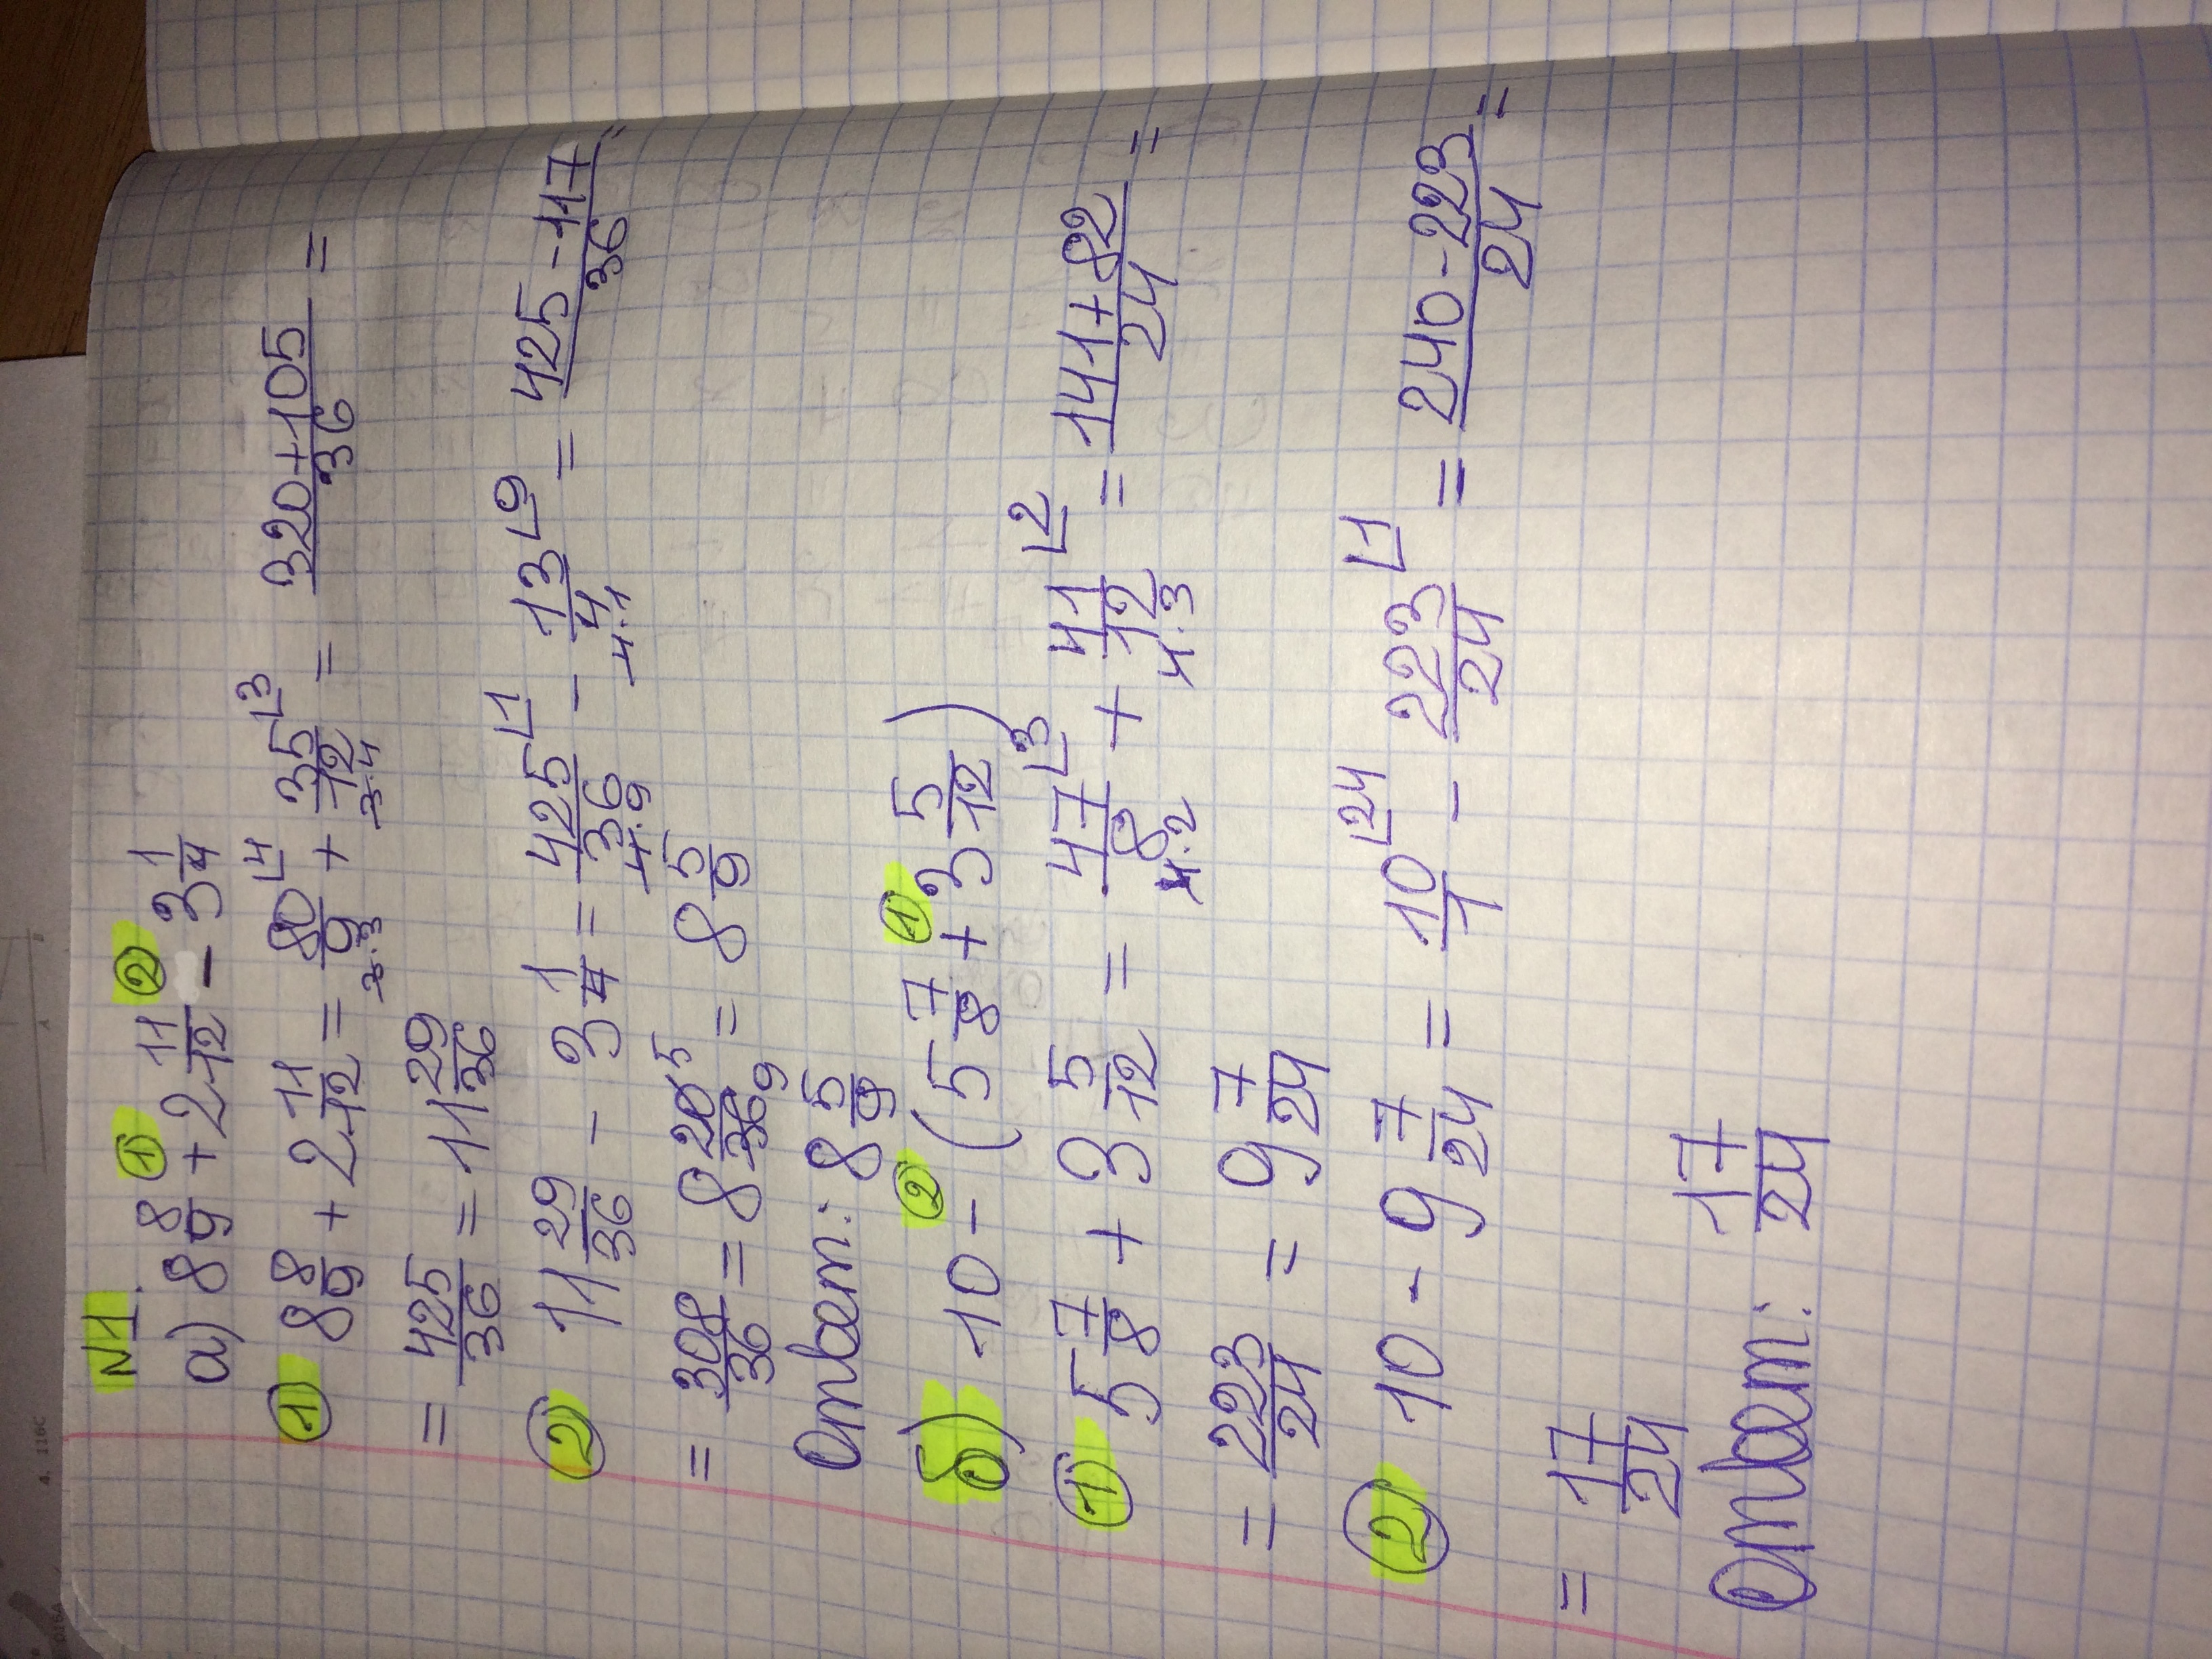 N1.
а) 8 8/9 + 2 11/12 - 3 1/4
① ②
① 8 8/9 + 2 11/12 = 80/9 ∟4 + 35/12 ∟3 = 320+105/36 =
3·3 3·4
= 425/36 = 11 29/36
② 11 29/36 - 3 1/4 = 425/36 ∟1 - 13/4 ∟9 = 425-117/36 =
4·9 4·1
= 308/36 = 8 20/36 5 9 = 8 5/9
Ответ: 8 5/9
② ①
б) 10 - (5 7/8 + 3 5/12)
① 5 7/8 + 3 5/12 = 47/8 ∟3 + 41/12 ∟2 = 141+82/24 =
4·2 4·3
= 223/24 = 9 7/24
② 10 - 9 7/24 = 10/1 ∟24 - 223/24 ∟1 = 240-223/24 =
= 17/24
Ответ: 17/24
4. 116C